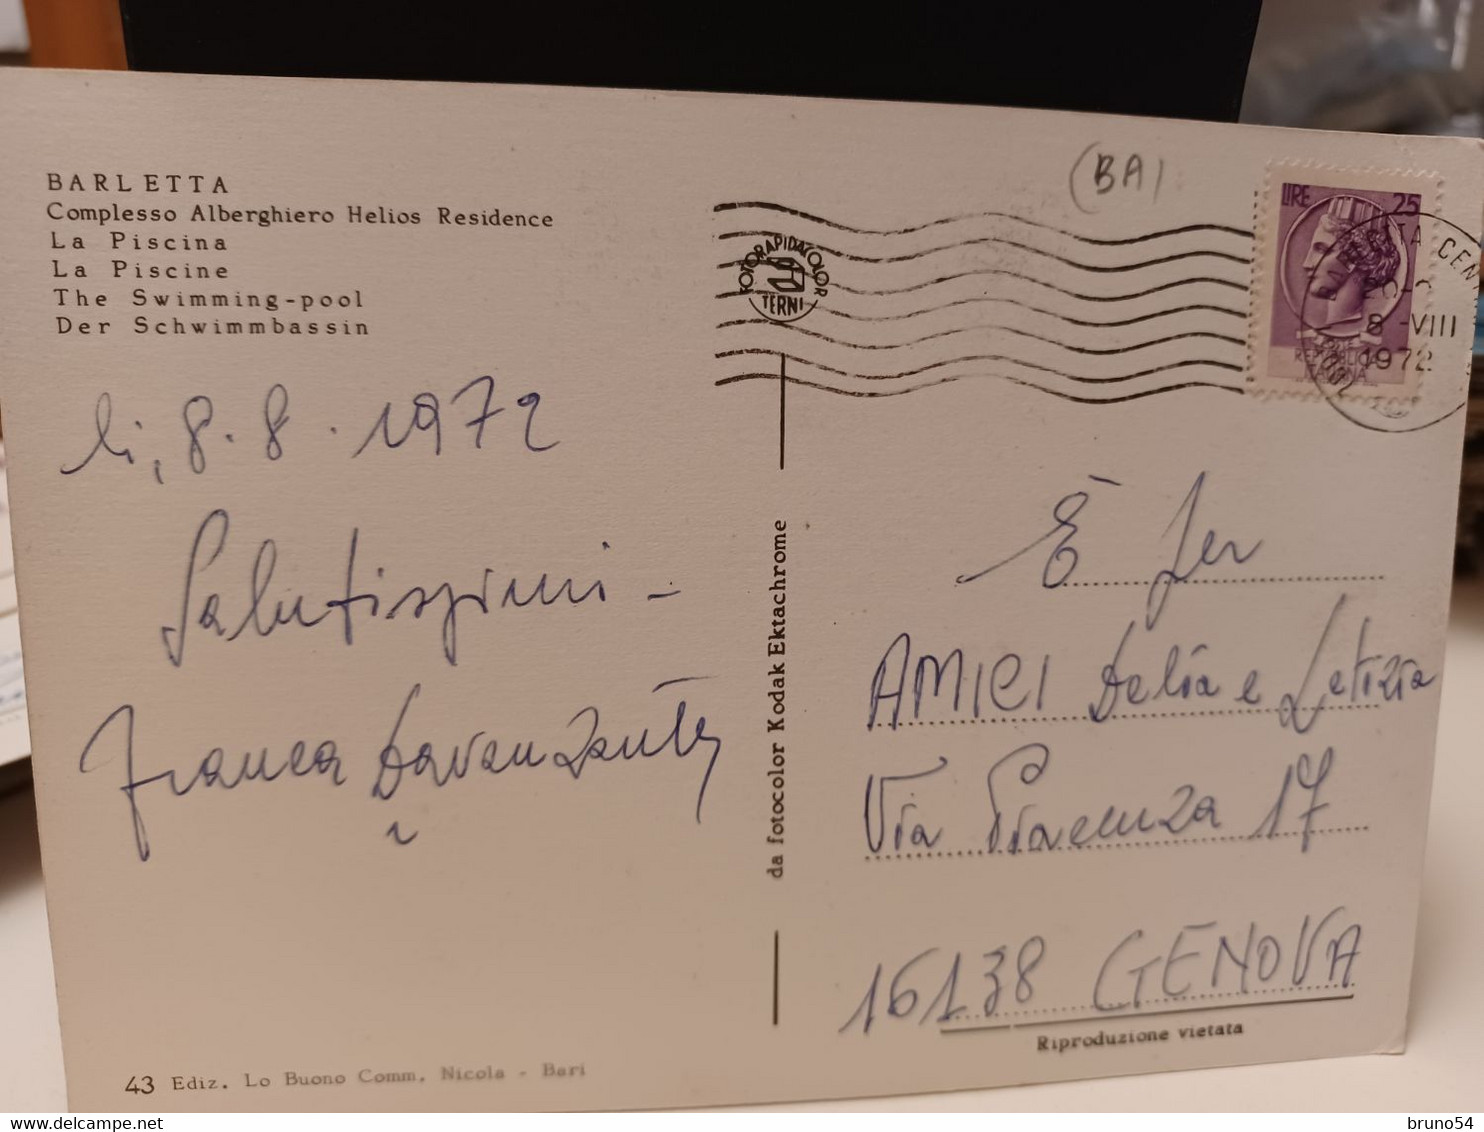 BARLETTA
Complesso Alberghiero Helios Residence
La Piscina
La Piscine
The Swimming-pool
Der Schwimmbassin
li, 8.8.1972
Salutissimi -
Franca Davanzante
43 Ediz. Lo Buono Comm. Nicola - Bari
FOTORAPIDACOLOR
TERNI
da fotocolor Kodak Ektachrome
(BA)
LIRE 25
REPUBBLICA
ITALIANA
CEN
8 -VIII
1972
AMICI Delia e Letizia
Via Piacenza 17
16138 GENOVA
Riproduzione vietata
bruno54